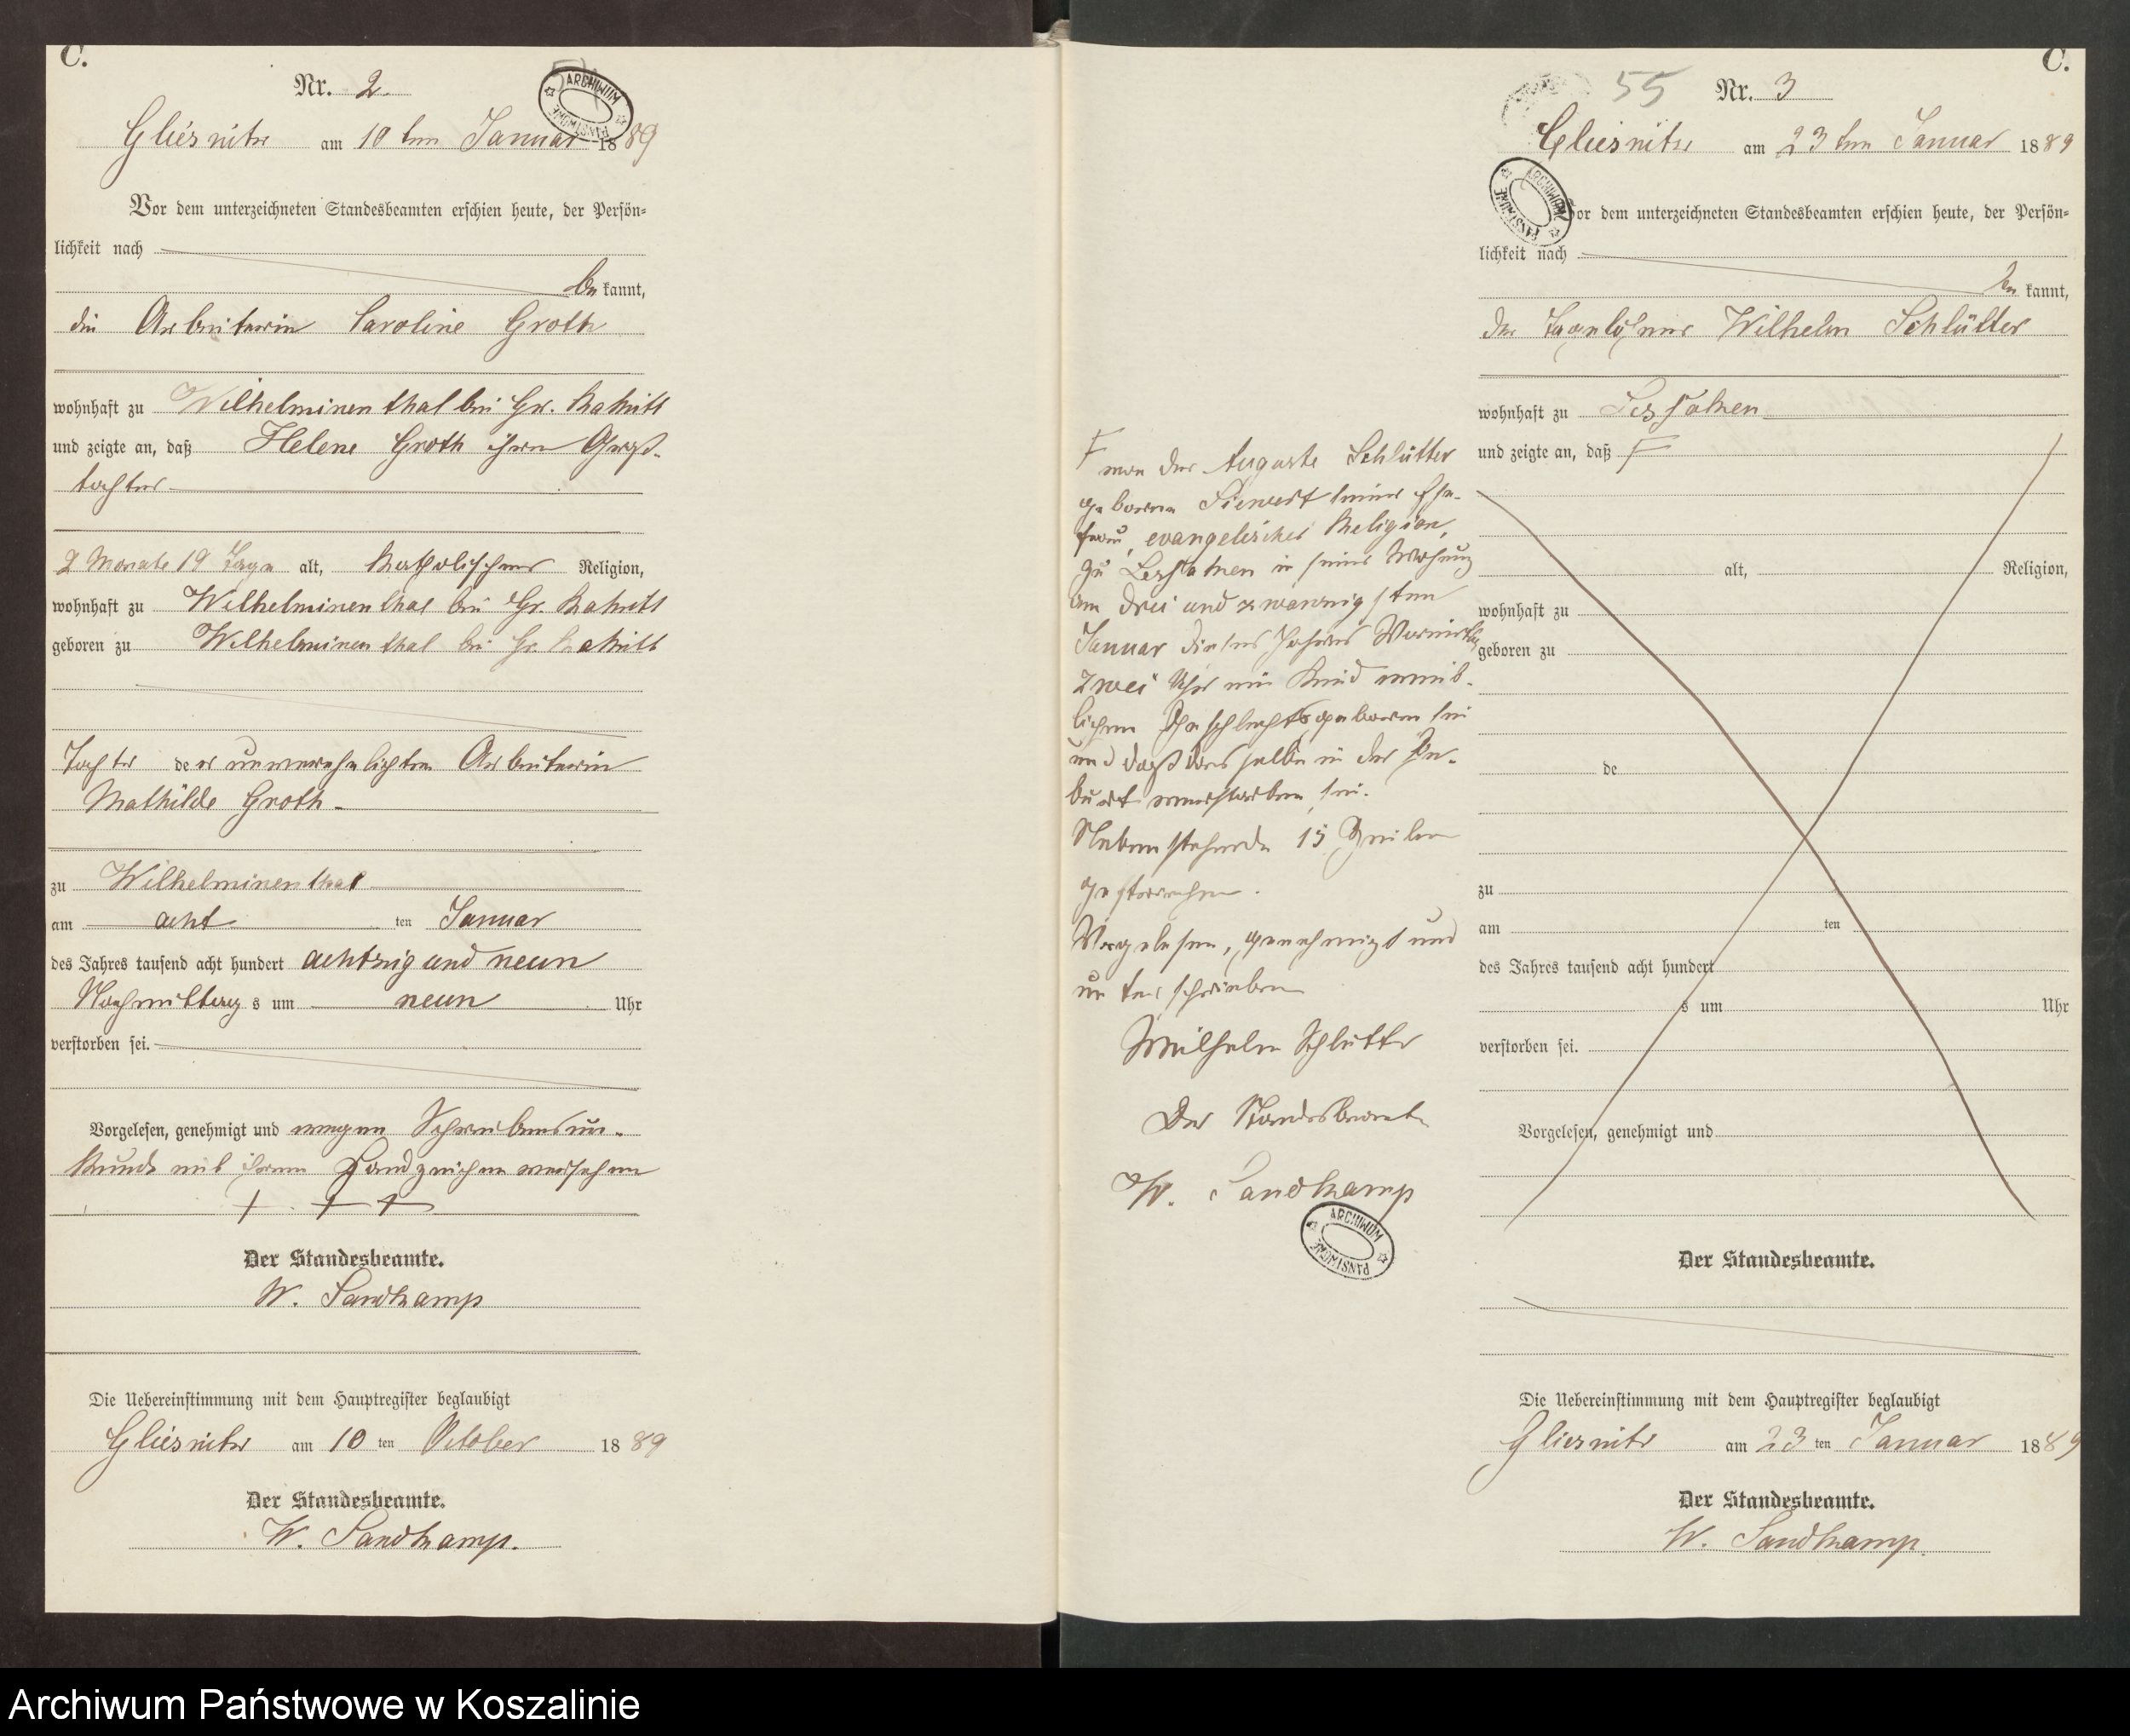 C.
Nr. 2.
ARCHIWUM PAŃSTWOWE
Gliesnitz am 10 ten Januar 1889
Vor dem unterzeichneten Standesbeamten erschien heute, der Persön-
lichkeit nach
be kannt,
die Arbeiterin Caroline Groth
wohnhaft zu Wilhelminenthal bei Gr.
und zeigte an, daß Helene Groth ihre Groß-
tochter
2 Monate 19 Tage alt, katholischer Religion,
wohnhaft zu Wilhelminenthal bei Gr.
geboren zu Wilhelminenthal bei Gr.
Tochter der unverehelichten Arbeiterin
Mathilde Groth-
zu Wilhelminenthal
am acht ten Januar
des Jahres tausend acht hundert achtzig und neun
Nachmittags um neun Uhr
verstorben sei.
Vorgelesen, genehmigt und wegen Schreibensun-
kunde mit ihrem Handzeichen versehen
+ + +
Der Standesbeamte.
W. Sandkamp
Die Uebereinstimmung mit dem Hauptregister beglaubigt
Gliesnitz am 10 ten October 1889
Der Standesbeamte.
W. Sandkamp.
C.
55 Nr. 3
Gliesnitz am 23 ten Januar 1889
ARCHIWUM PAŃSTWOWE
Vor dem unterzeichneten Standesbeamten erschien heute, der Persön-
lichkeit nach
be kannt,
der Tagelöhner Wilhelm Schlütter
wohnhaft zu Lessaken
und zeigte an, daß F
F von der Auguste Schlütter
geborene Siewert seiner Ehe-
frau, evangelischer Religion,
zu Lessaken in seiner Wohnung
am drei und zwanzigsten
Januar dieses Jahres Vormittags
zwei Uhr ein Kind weib-
lichen Geschlechts geboren sei
und daß dasselbe in der Ge-
burt verstorben sei.
Nebenstehende 15 Zeilen
gestrichen.
Vorgelesen, genehmigt und
unterschrieben
Wilhelm Schlütter
Der Standesbeamte
W. Sandkamp
ARCHIWUM PAŃSTWOWE
alt, Religion,
wohnhaft zu
geboren zu
de
zu
am ten
des Jahres tausend acht hundert
s um Uhr
verstorben sei.
Vorgelesen, genehmigt und
Der Standesbeamte.
Die Uebereinstimmung mit dem Hauptregister beglaubigt
Gliesnitz am 23 ten Januar 1889
Der Standesbeamte.
W. Sandkamp.
Archiwum Państwowe w Koszalinie